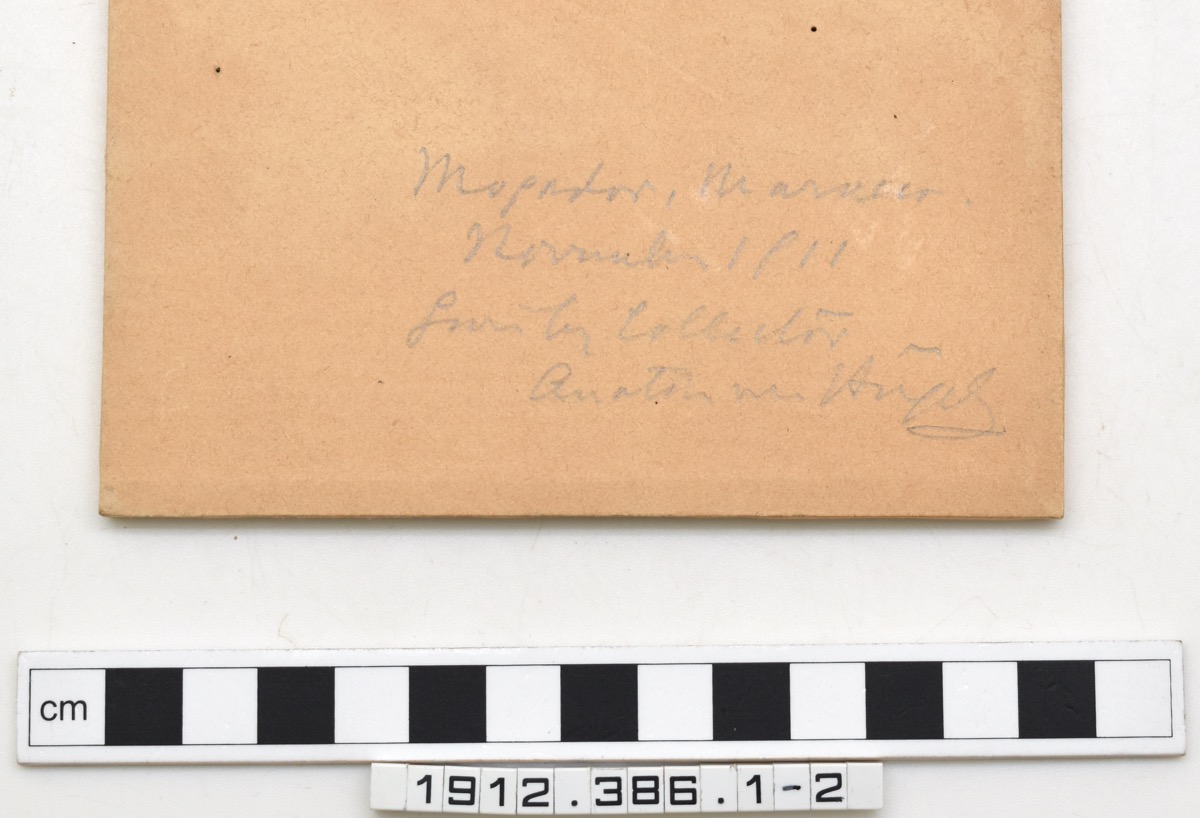 Mogador, Marocco.
November 1911
Given by Collector
Anatole von Hügel
cm
1912.386.1-2